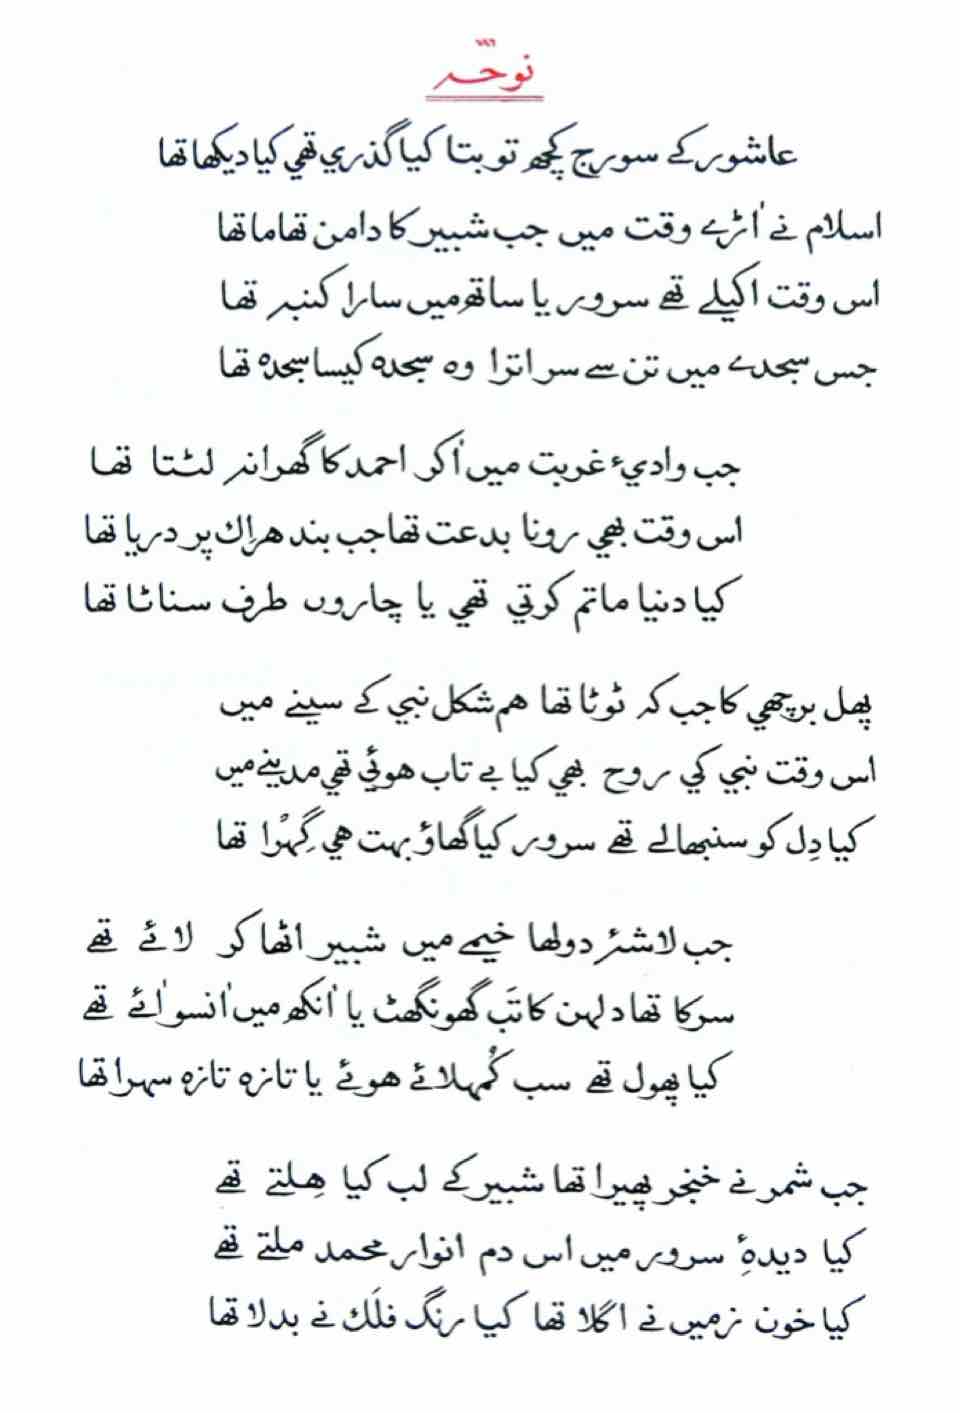 ٧٨٦
نوحہ
عاشور کے سورج کچھ تو بتا کیا گذري تھي کیا دیکھا تھا
اسلام نے اٰڑے وقت میں جب شبیر کا دامن تھاما تھا
اس وقت اکیلے تھے سرور یا ساتھ میں سارا کنبہ تھا
جس سجدے میں تن سے سر اترا وہ سجدہ کیسا سجدہ تھا
جب واديء غربت میں اٰکر احمد کا گھرانہ لٹتا تھا
اس وقت بھي رونا بدعت تھا جب بند هراِك پر دریا تھا
کیا دنیا ماتم کرتي تھي یا چاروں طرف سناٹا تھا
پھل برچھي کا جب کہ ٹوٹا تھا هم شکل نبي کے سینے میں
اس وقت نبي کي روح بھي کیا بے تاب هوئي تھي مدینے میں
کیا دِل کو سنبھالے تھے سرور کیا گھاؤ بہت هي گِہْرا تھا
جب لاشئہ دولھا خیمے میں شبیر اٹھا کر لائے تھے
سرکا تھا دلہن کا تَب گھونگھٹ یا اٰنکھ میں اٰنسو اٰئے تھے
کیا پھول تھے سب کُمہلائے هوئے یا تازہ تازہ سہرا تھا
جب شمر نے خنجر پھیرا تھا شبیر کے لب کیا هِلتے تھے
کیا دیدۂِ سرور میں اس دم انوار محمد ملتے تھے
کیا خون زمیں نے اگلا تھا کیا رنگ فلَك نے بدلا تھا